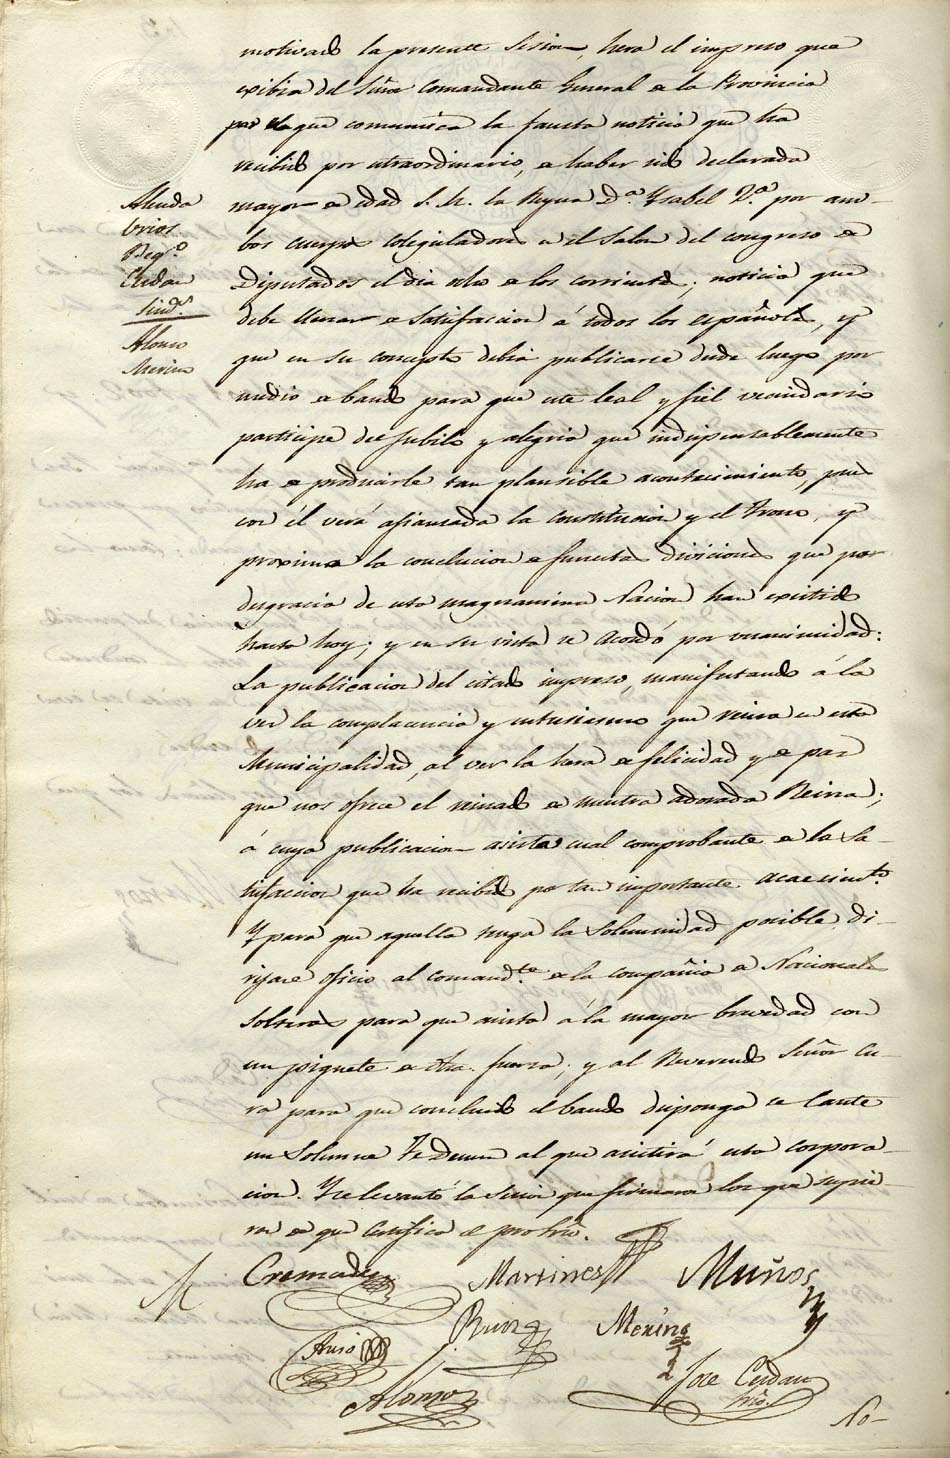 motivado la presente sesion, hera el impreso que
exibia del Señor Comandante General de la Provincia
por el que comunica la fausta noticia que ha
recibido por extraordinario, de haber sido declarada
mayor de edad S. M. la Reyna D.ª Ysabel 2.ª por am-
bos cuerpos colegisladores en el Salon del congreso de
Diputados el dia ocho de los corrientes; noticia que
debe llenar de satisfaccion á todos los españoles, y
que en su concepto debia publicarse desde luego por
medio de bando para que este leal y fiel vecindario
participe del jubilo y alegria que indispensablemente
ha de producirle tan plausible acontecimiento, pues
con él verá afianzada la constitucion y el Trono, y
proxima la conclucion de funestas diviciones que por
desgracia de esta magnanima Nacion han existido
hasta hoy; y en su vista se Acordó por unanimidad:
La publicacion del citado impreso, manifestando á la
vez la complacencia y entusiasmo que reina en esta
Municipalidad, al ver la hera de felicidad y de paz
que nos ofrece el reinado de nuestra adorada Reina;
á cuya publicacion asista cual comprobante de la Sa-
tisfaccion que ha recibido por tan importante acaecim.to
Y para que aquella tenga la Solemnidad posible, di-
rijase oficio al comand.te de la compañia de Nacionales
Solteros para que asista á la mayor brevedad con
un piquete de dha. fuerza; y al Reverendo Señor Cu-
ra para que concluido el bando disponga se cante
un Solemne Te Deum al que asistirá esta corpora-
cion. Y se levantó la sesion que firmaron los que supie
ron de que Certifico el pro Srio.
Almda
brios
Reg.º
Cerdan
Sind.s
Alonso
Merino
Cremades
Martines
Muños
Ruiz
Merino
Asio
Alonso
Jose Cerdan
Srio.
No-